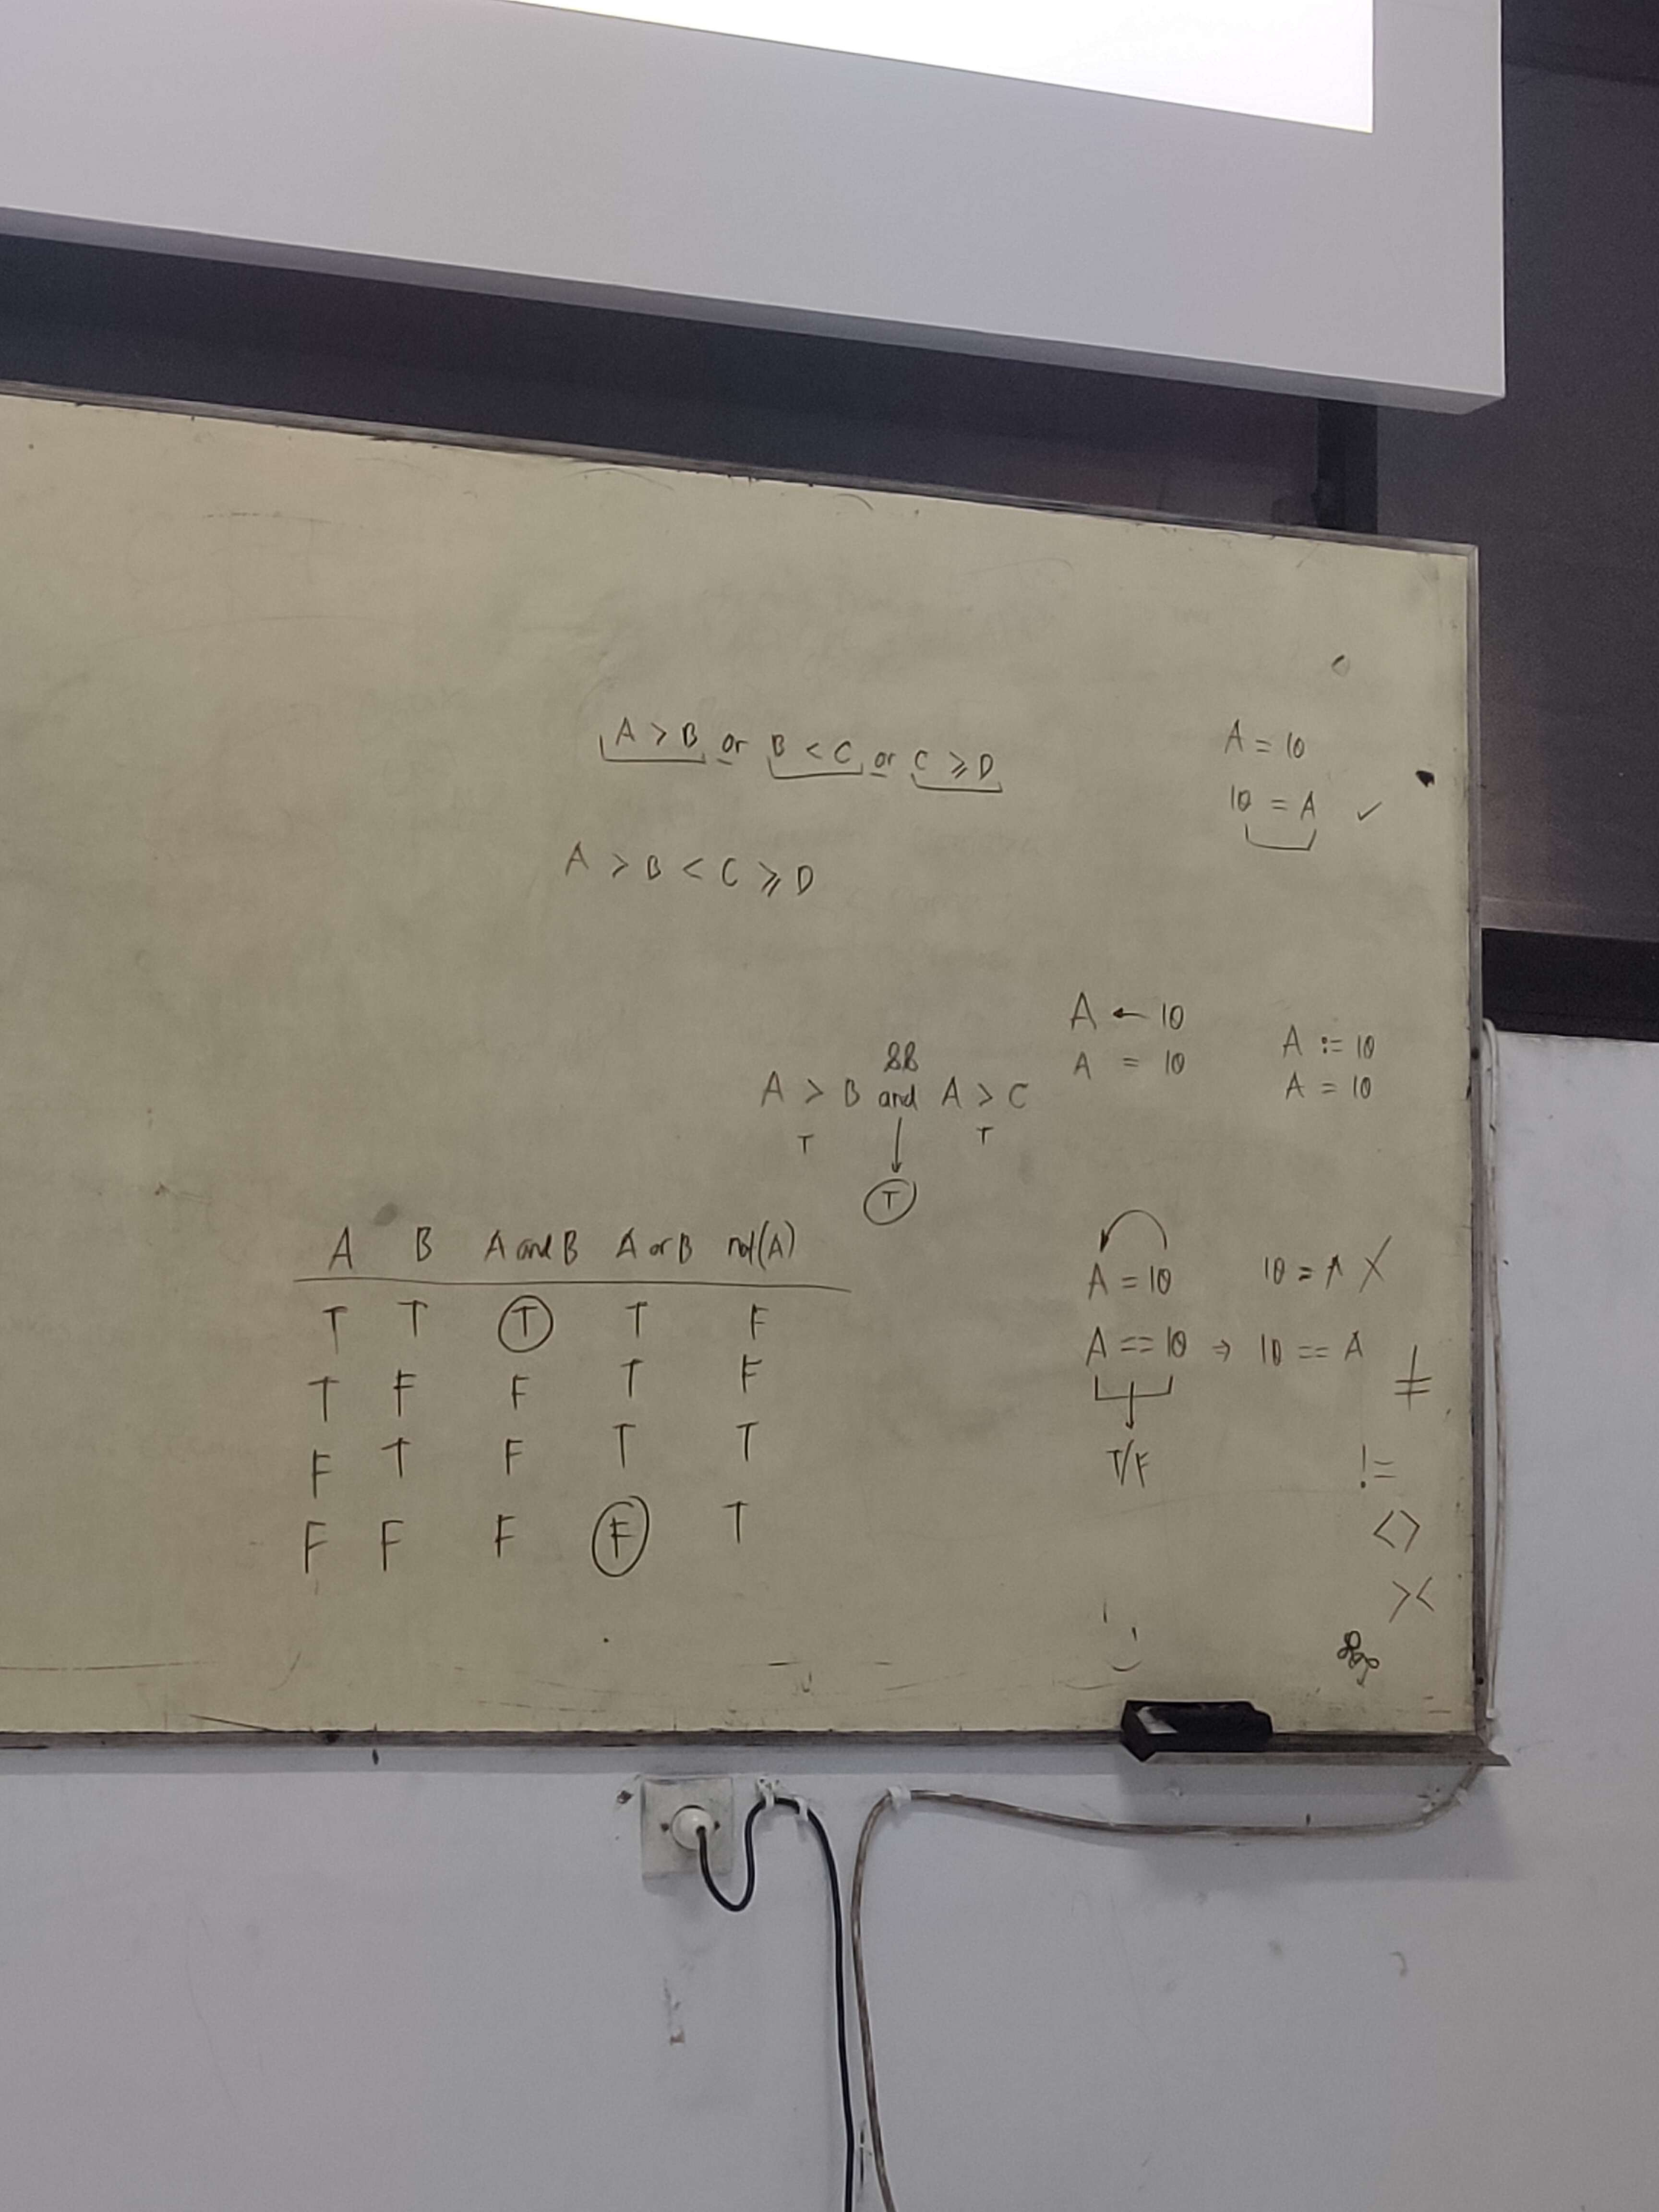 A > B or B < C or C ⩾ D
A > B < C ⩾ D
A = 10
10 = A ✓
A ← 10
A = 10
A := 10
A = 10
&&
A > B and A > C
T T
T
A B A and B A or B not(A)
T T T T F
T F F T F
F T F T T
F F F F T
A = 10 10 = A X
A == 10 ⇒ 10 == A
T/F
≠
!=
<>
><